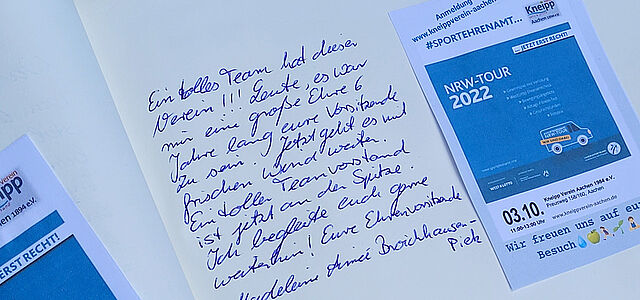 Ein tolles Team hat dieser
Verein!!! Leute, es war
mir eine große Ehre 6
Jahre lang eure Vorsitzende
zu sein. Jetzt geht es mit
frischem Wind weiter.
Ein toller Teamvorstand
ist jetzt an der Spitze.
Ich begleite euch gerne
weiterhin! Eure Ehrenvorsitzende
Madeleine Aimée Broichhausen-
Piek
Anmeldung
www.kneippverein-aachen
Kneipp
#SPORTEHRENAMT...
... JETZT ERST RECHT!
NRW-TOUR
2022
NRW-TOUR
WESTLOTTO
03.10.
11:00-13:00 Uhr
Kneipp Verein Aachen 1894 e.V.
Preusweg 158/160, Aachen
www.kneippverein-aachen.de
Wir freuen uns auf eu
Besuch
verein
ipp
1894 e.V.
ERST RECHT!